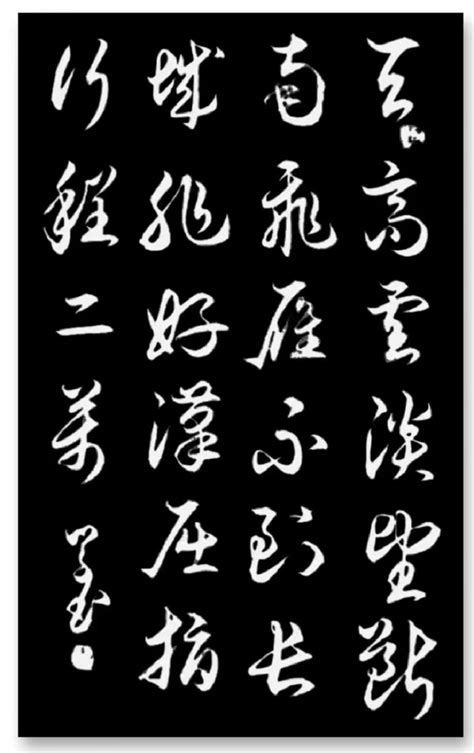 天高雲淡望斷
南飛雁不到長
城非好漢屈指
行程二萬